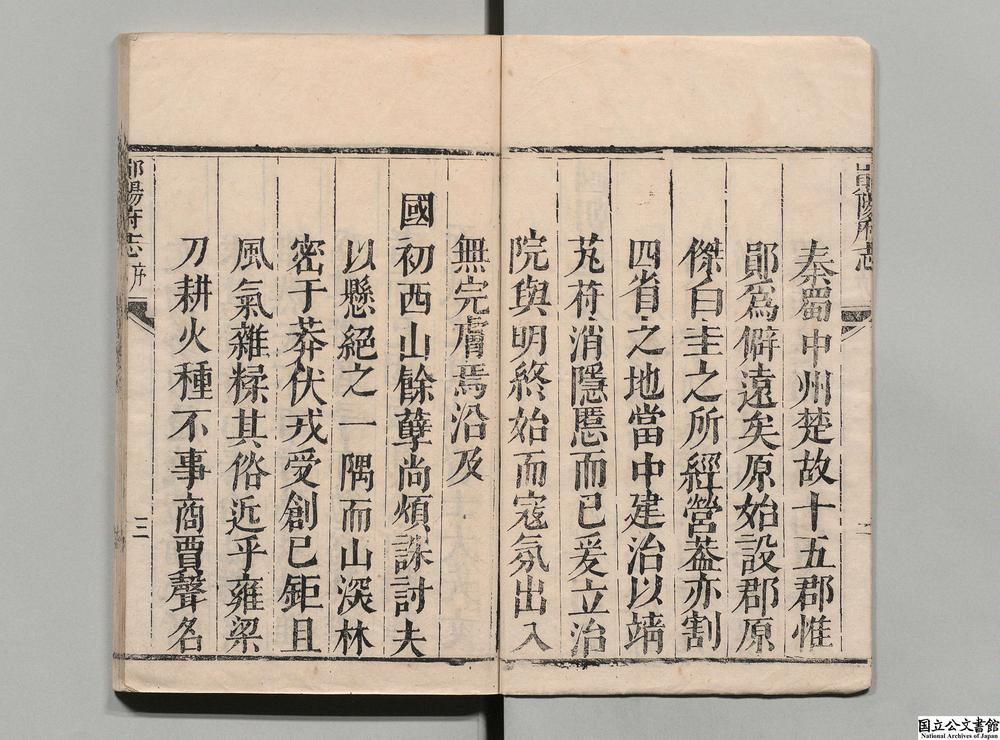 鄖陽府志
秦蜀中州楚故十五郡惟
鄖爲僻遠矣原始設郡原
傑白圭之所經營葢亦割
四省之地當中建治以靖
芄苻消隱慝而已爰立治
院與明終始而寇氛出入
無完膚焉沿及
國初西山餘孽尚煩誅討夫
以懸絕之一隅而山深林
密于莽伏戎受創已鉅且
風氣雜糅其俗近乎雍梁
刀耕火種不事商賈聲名
鄖陽府志
序
三
国立公文書館
National Archives of Japan